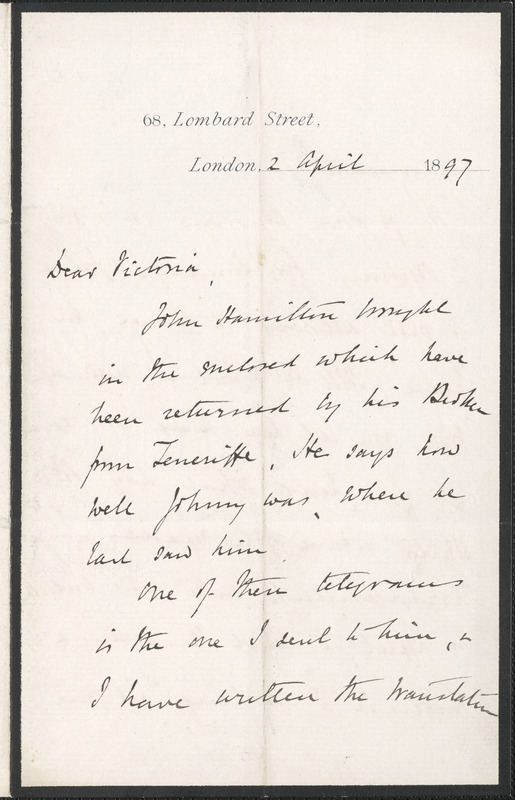 68, Lombard Street,
London, 2 April 1897
Dear Victoria,
John Hamilton brought
in the enclosed which have
been returned by his Brother
from Teneriffe. He says how
well Johnny was, when he
last saw him
One of these telegrams
is the one I sent to him, &
I have written the translation